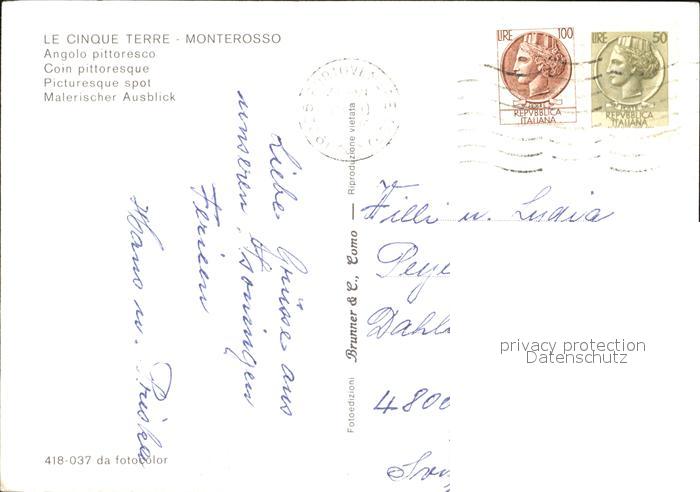 LE CINQUE TERRE - MONTEROSSO
Angolo pittoresco
Coin pittoresque
Picturesque spot
Malerischer Ausblick
LIRE 100
REPVBBLICA
ITALIANA
LIRE 50
REPVBBLICA
ITALIANA
Liebe Grüsse aus
unseren
Ferien
Hans u. Priska
Fotoedizioni Brunner & C., Como — Riproduzione vietata
u. Lydia
Peye
Dahl
4800
privacy protection
Datenschutz
418-037 da fotocolor